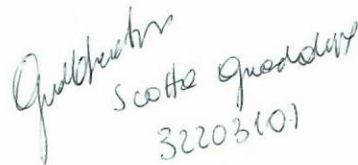 Scotta Guadalupe
32203101